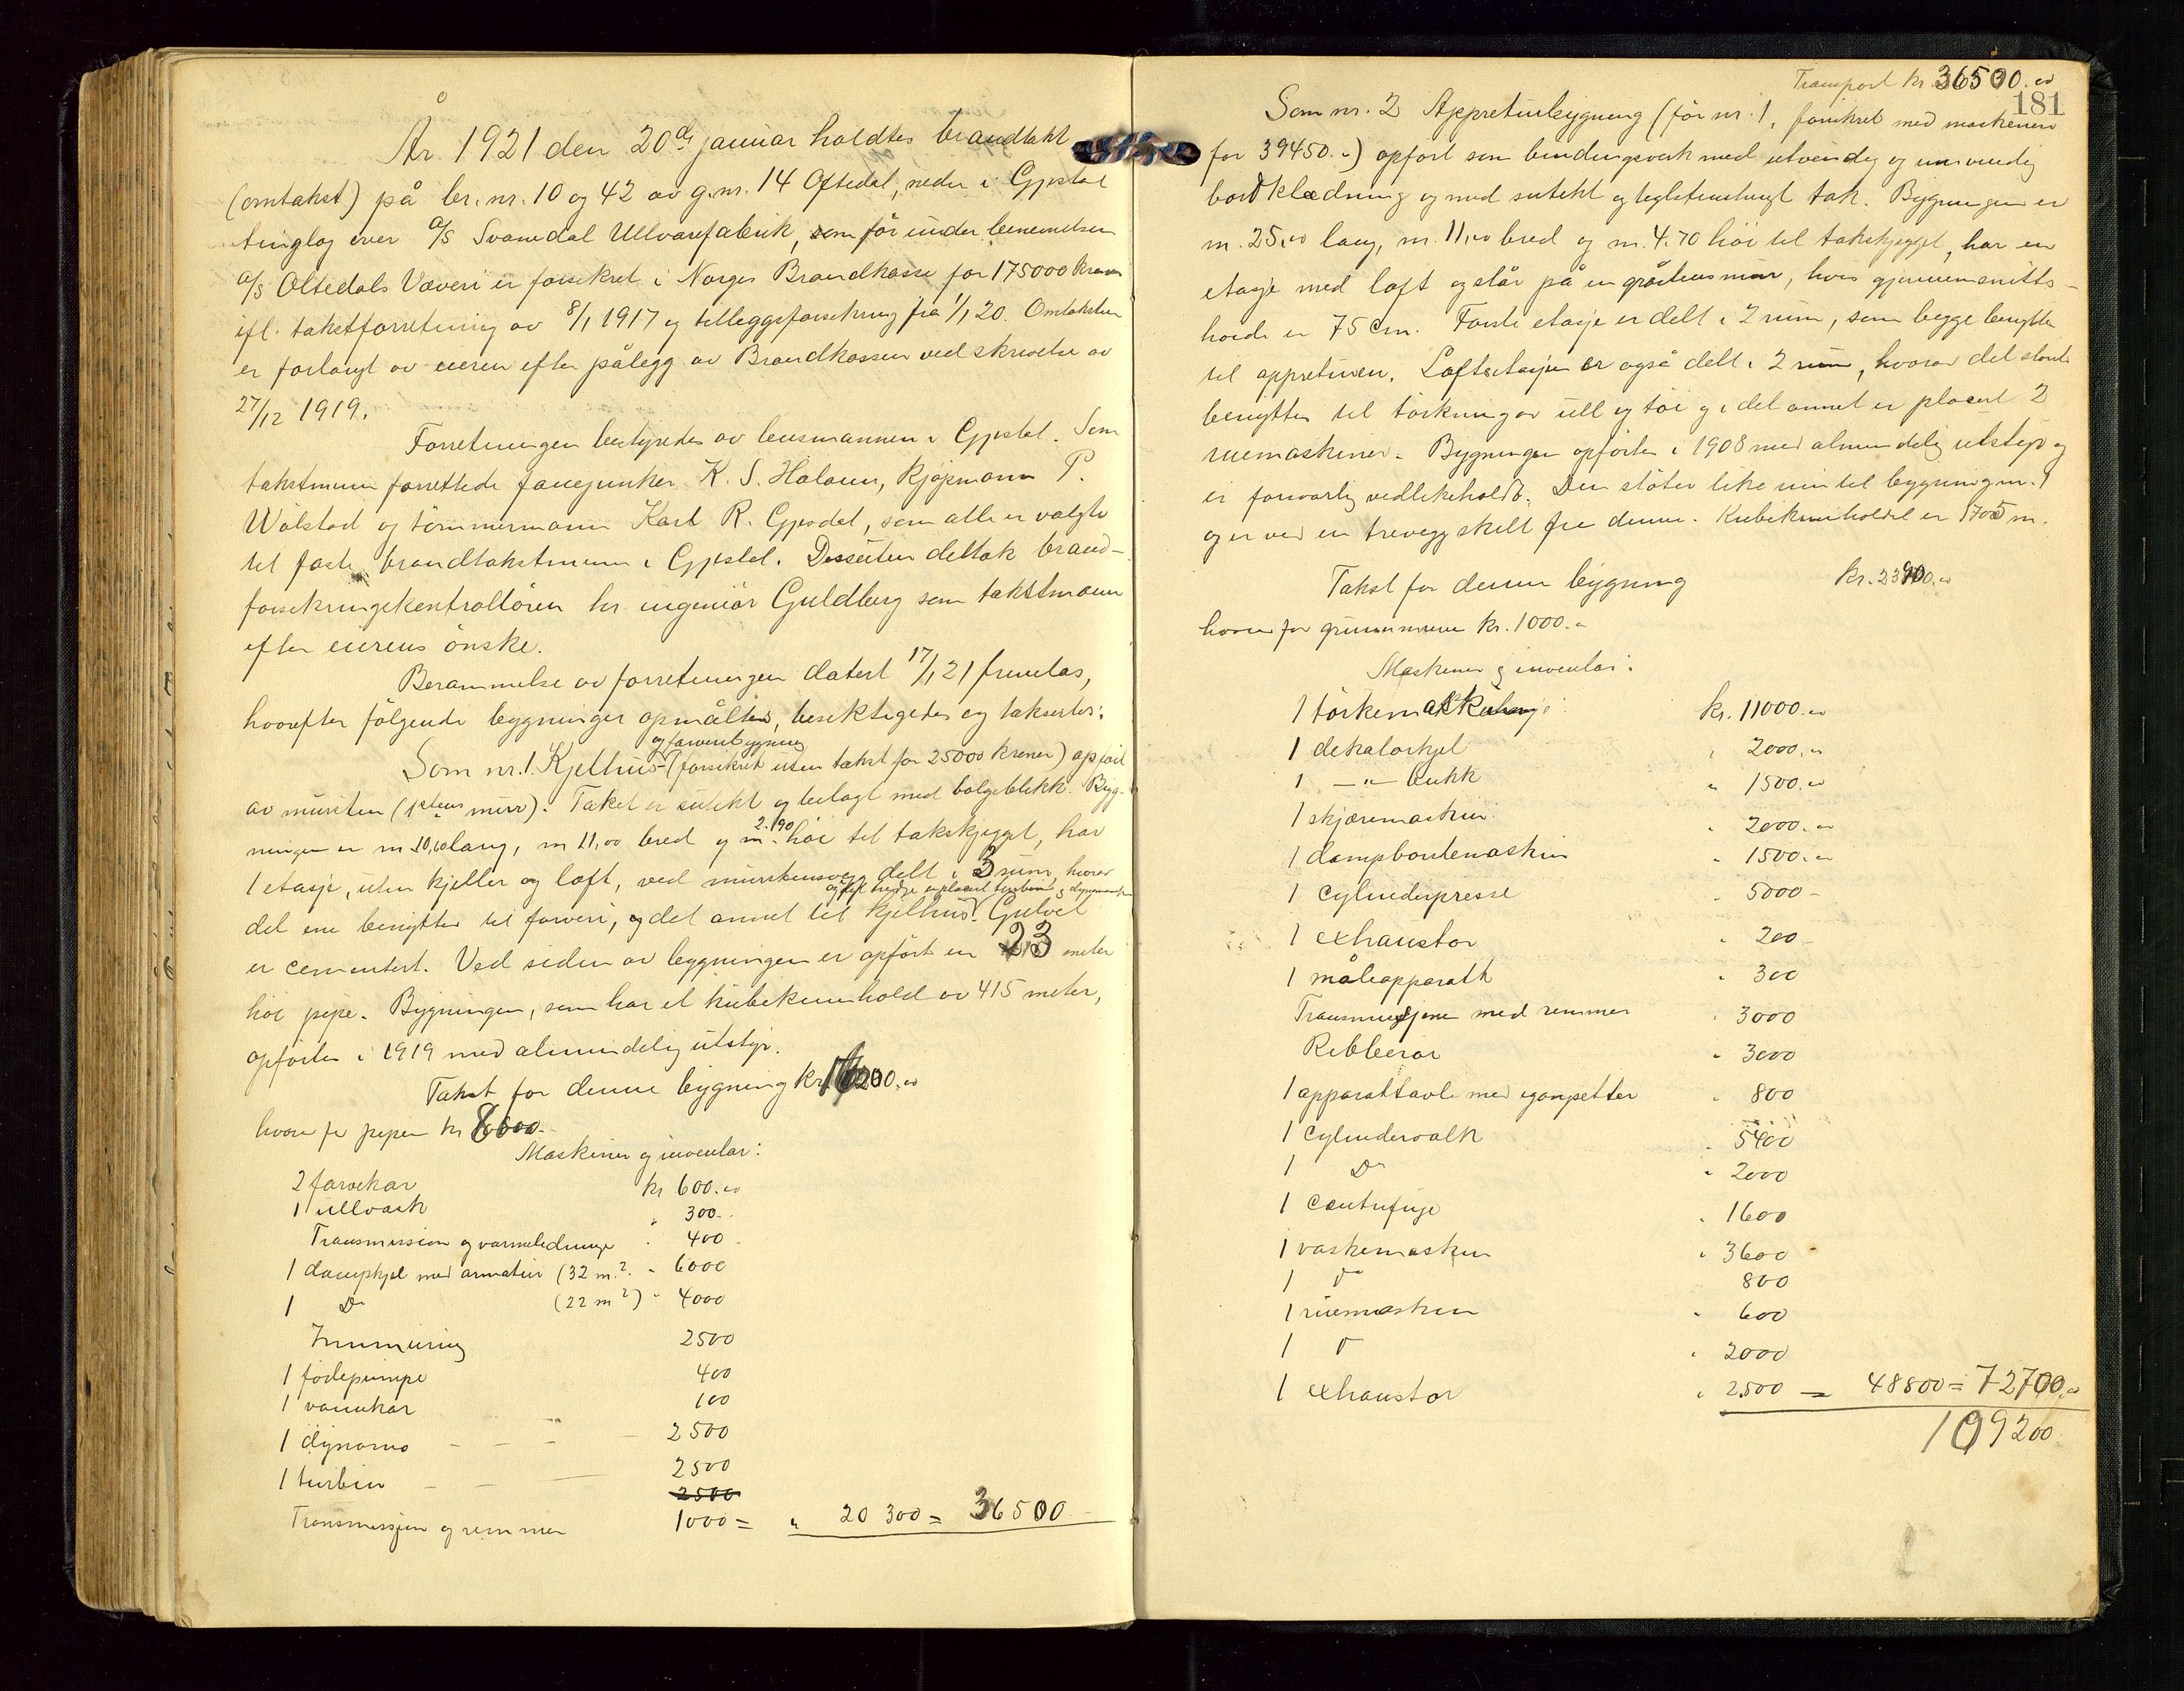 År 1921 den 20de januar holdtes brandtakt
(omtakst) på br. nr. 10 og 42 av g.nr. 14 Oftedal, nedre i Gjestal
tinglag over A/S Svanedal Ullvarefabrik, som før under benevnelsen
A/S Oltedals Væveri er forsikret i Norges Brandkasse for 175000 kroner
ifl. takstforretning av 8/1 1917 og tilleggsforsikring fra 1/1 20. Omtaksten
er forlangt av eieren efter pålegg av Brandkassen ved skrivelse av
27/12 1919.
Forretningen bestyredes av lensmannen i Gjestal. Som
takstmenn forrettede fanejunker K. S. Haloun, kjøpmann P.
Wölstad og tømmermann Karl R. Gjesdal, som alle er valgte
til faste brandtakstmenn i Gjestal. Dessuten deltok brand-
forsikringskontrolløren hr. ingeniør Guldberg som takstmann
efter eierens ønske.
Berammelse av forretningen datert 17/1 21 fremlas,
hvorefter følgende bygninger opmåltes, besiktigedes og taksertes:
og farveribygning
Som nr. 1. Kjelhus (forsikret uten takst for 25000 kroner) opført
av mursten (1 stens mur). Taket er sutekt og belagt med bølgeblikk. Byg-
ningen er m 10,60 lang, m 11,00 bred og m. 2.190 høi til takskjegget, har
1 etasje, uten kjeller og loft, ved murstensvegg delt i 3 rum, hvorav
og i det tredje er placert turbin og dynamo
det ene benyttes til farveri, og det annet til kjelhus. Gulvet
er cementert. Ved siden av bygningen er opført en 23 meter
høi pipe. Bygningen, som har et kubikinnhold av 415 meter,
opførtes i 1919 med almindelig utstyr.
Takst for denne bygning kr. 16200.00
hvorav for pipen kr 8000.-
Maskiner og inventar:
2 farvekar kr 600.00
1 ullvask " 300.-
Transmission og varmeledninge " 400 -
1 dampkjel med armatur (32 m.2. " 6000
1 Do (22 m2) " 4000
Innmuring 2500
1 fødepumpe 400
1 vannkar 100
1 dynamo - - - 2500
1 turbin - - 2500
2500
Transmissjon og remmer 1000 = " 20 300 = 36500.-
Transport kr. 36500.00
181
Som nr. 2 Appreturbygning (før nr. 1, forsikret med maskiner
for 39450.-) opført som bindingsverk med utvendig og innvendig
bordklædning og med sutekt og teglstenstengt tak. Bygningen er
m. 25,00 lang, m. 11,00 bred og m. 4.70 høi til takskjegget, har en
etasje med loft og står på en gråstensmur, hvis gjennemsnitts-
høide er 75 cm. Første etasje er delt i 2 rum, som begge benyttes
til appreturen. Loftsetasjen er også delt i 2 rum, hvorav det største
benyttes til tørkning av ull og tøi og i det annet er placert 2
ruemaskiner. Bygningen opførtes i 1908 med almindelig utstyr og
er forsvarlig vedlikeholdt. Den støter like inn til bygning nr. 1
og er ved en trevegg skilt fra denne. Kubikinnholdet er 1705 m.
Takst for denne bygning kr. 23900.00
hvorav for grunnmuren kr. 1000.-
Maskiner og inventar:
1 tørkemaskin kr. 11000.00
1 dekatørkjel " 2000.00
1 -"- bukk " 1500.00
1 skjæremaskin " 2000.00
1 dampbørstemaskin " 1500.00
1 cylinderpresse " 5000 -
1 exhaustor " 200 -
1 måleapparatk " 300
Transmissjone med remmer " 3000
Ribberør " 3000
1 apparattavle med 800
1 cylindervalk " 5400
1 Do " 2000
1 centrifuge " 1600
1 vaskemaskin " 3600
1 Do 800
1 ruemaskin " 600
1 Do " 2000
1 exhaustor " 2500 = 48800 = 72700.00
109200